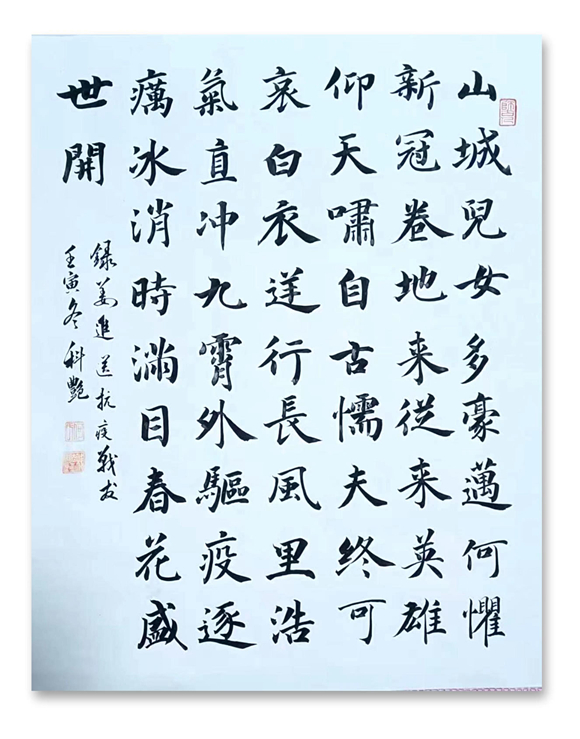 山城兒女多豪邁何懼
新冠卷地来從来英雄
仰天嘯自古懦夫終可
哀白衣送行長風里浩
氣直冲九霄外驅疫逐
癘冰消時滿目春花盛
世開
錄姜進送抗疫戰友
壬寅冬科艷